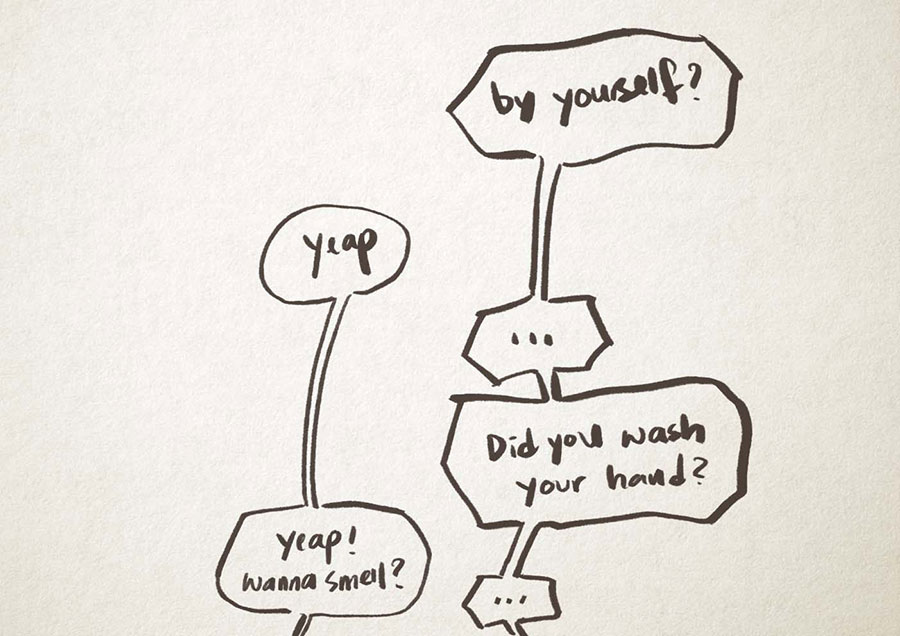 by yourself?
yeap
...
Did you wash
your hand?
yeap!
wanna smell?
...